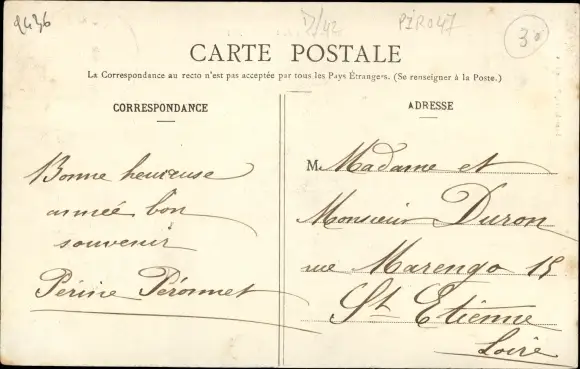 2436
D/42
PIR047
30
CARTE POSTALE
La Correspondance au recto n'est pas acceptée par tous les Pays Étrangers. (Se renseigner à la Poste.)
CORRESPONDANCE
Bonne heureuse
année bon
souvenir
Périne Péronnet
ADRESSE
M. Madame et
Monsieur Duron
rue Marengo 15
St Etienne
Loire